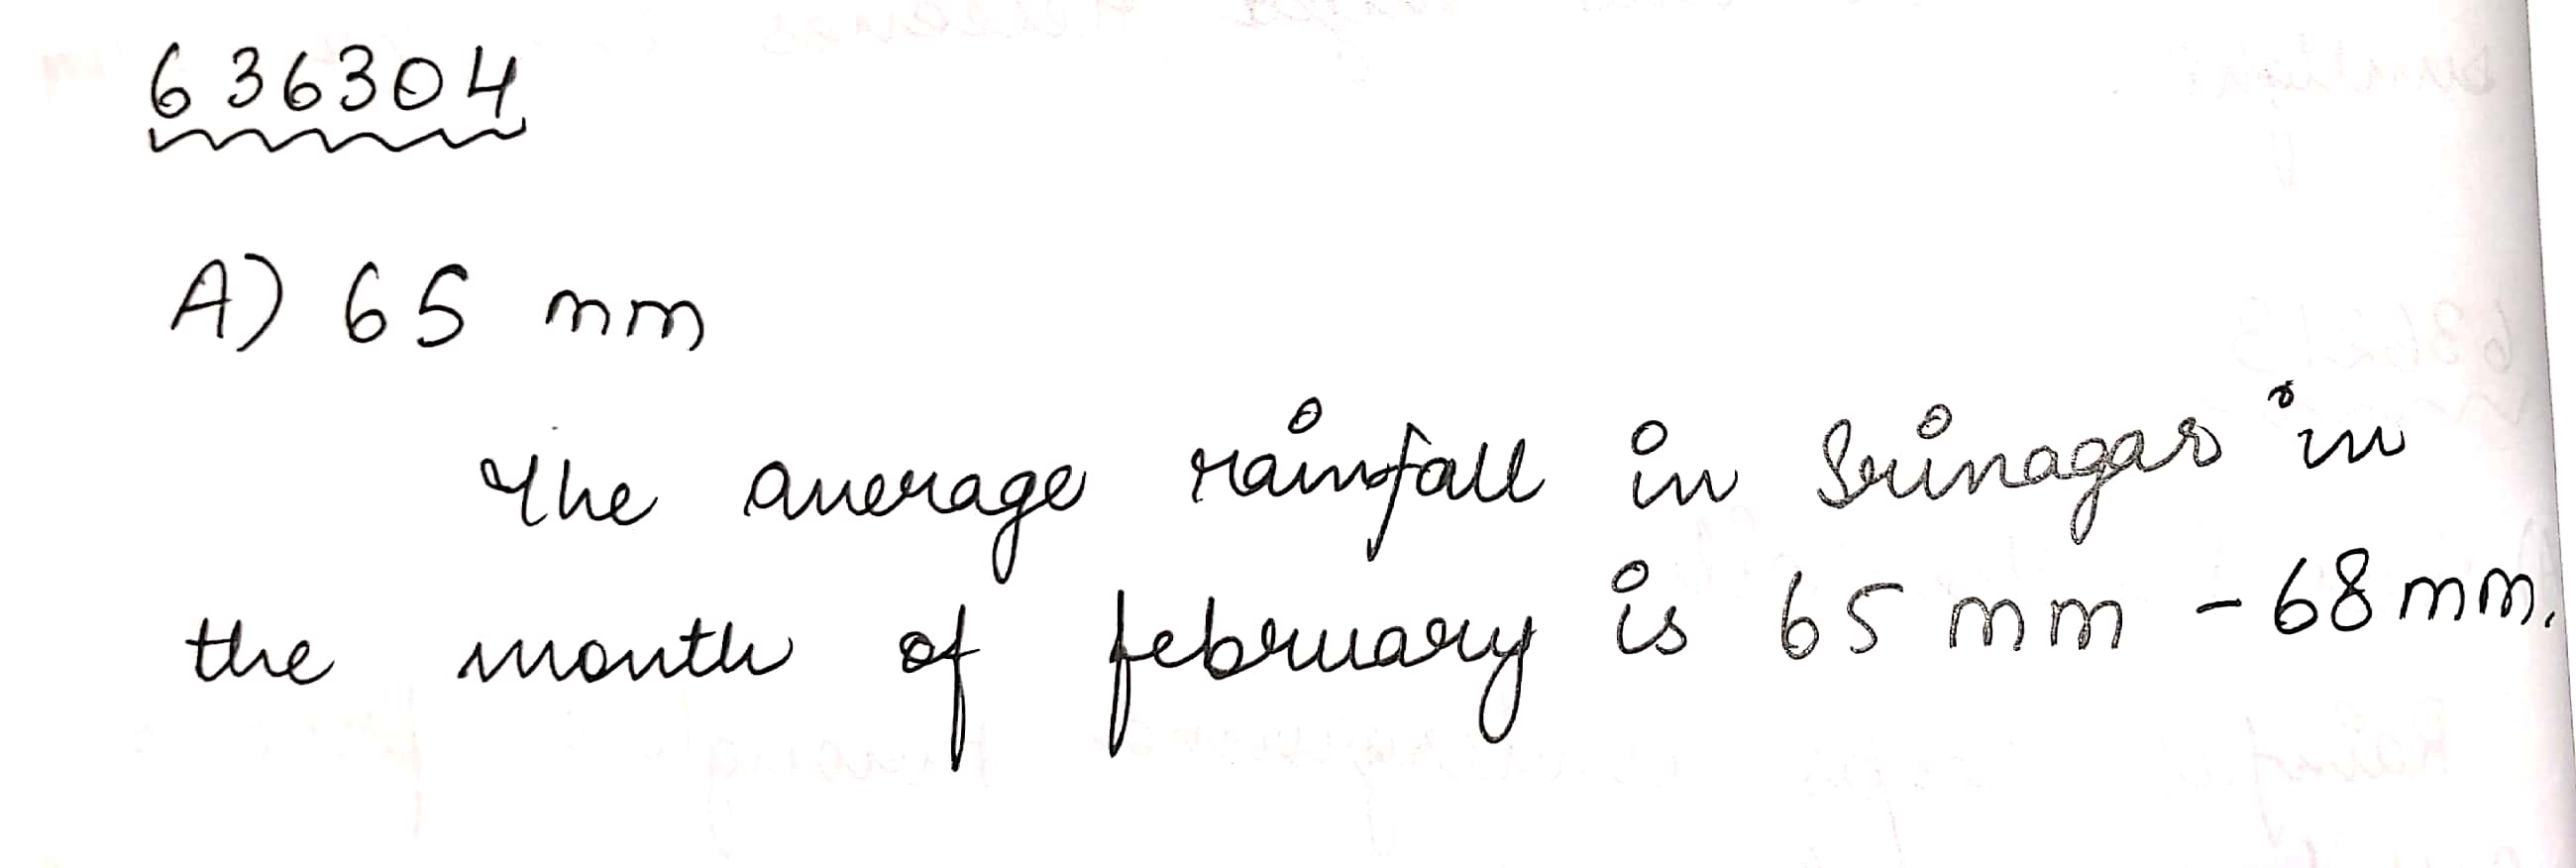 636304
A) 65 mm
The average rainfall in Srinagar in
the month of february is 65 mm - 68 mm.